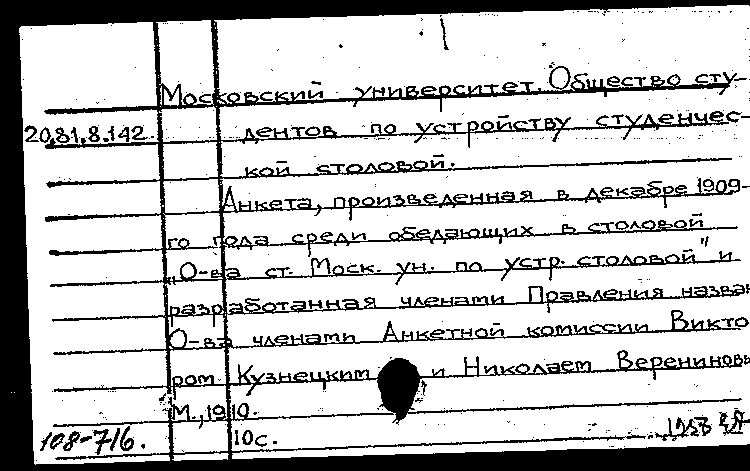 Московский университет. Общество сту-
20,81,8.142 дентов по устройству студенчес-
кой столовой.
Анкета, произведенная в декабре 1909-
го года среди обедающих в столовой
„О-ва ст. Моск. ун. по устр. столовой" и
разработанная членами Правления назван
О-ва членами Анкетной комиссии Викто
ром Кузнецким и Николаем Верениновы
М., 1910.
108-716. 10с.